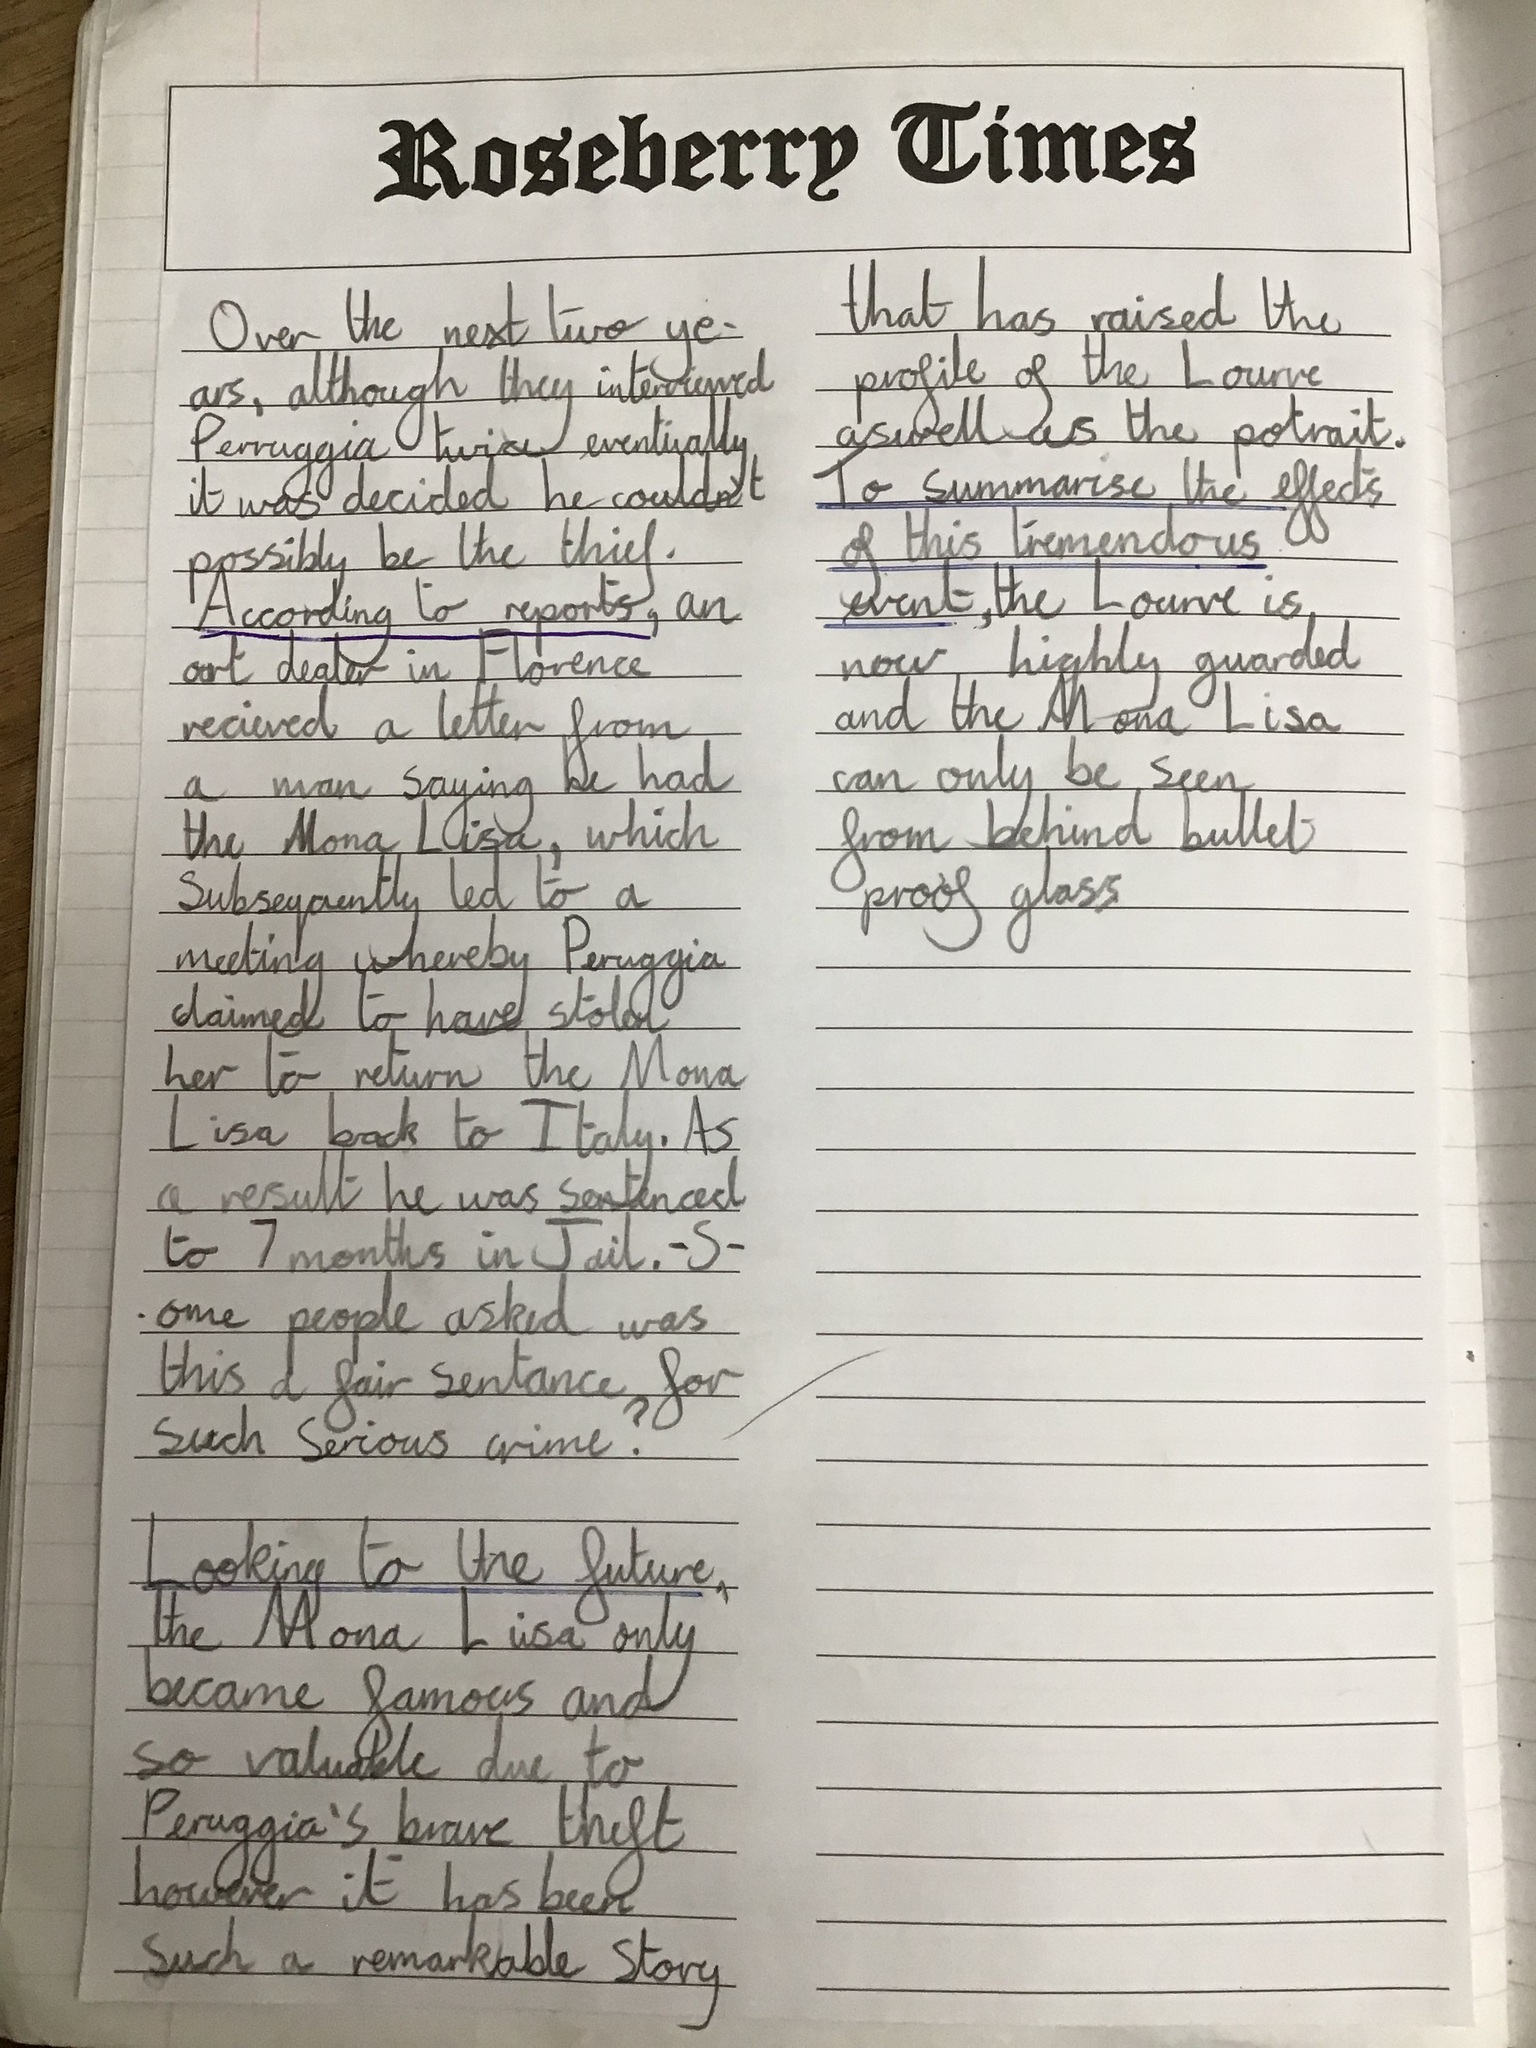 Roseberry Times
Over the next two ye-
ars, although they interviewed
Perruggia twice eventually
it was decided he couldn't
possibly be the thief.
According to reports, an
art dealer in Florence
recieved a letter from
a man saying he had
the Mona Lisa, which
Subseqauntly led to a
meeting whereby Peruggia
claimed to have stolen
her to return the Mona
Lisa back to Italy. As
a result he was sentenced
to 7 months in Jail. -S-
ome people asked was
this a fair sentance, for
such serious crime?
Looking to the future,
the Mona Lisa only
became famous and
so valuable due to
Peruggia's brave theft
however it has been
such a remarkable story
that has raised the
profile of the Lourve
aswell as the potrait.
To summarise the effects
of this tremendous
event, the Lourve is
now highly guarded
and the Mona Lisa
can only be seen
from behind bullet
proof glass